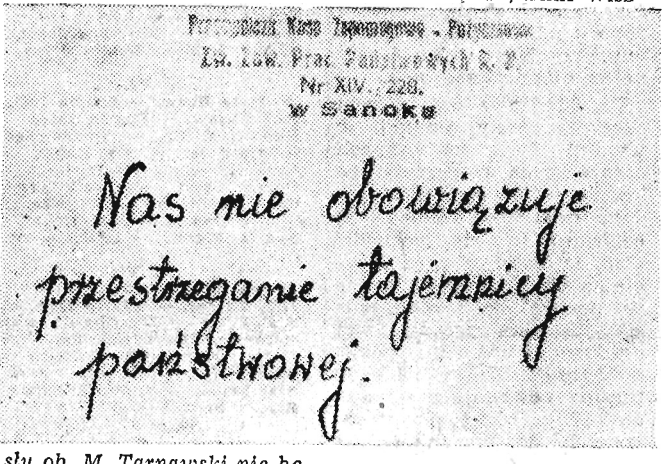 Kasa Zapomogowo - Pożyczkowa
Zw. Zaw. Prac. Państwowych R. P.
Nr XIV. 220.
w Sanoku
Nas nie obowiązuje
przestrzeganie tajemnicy
państwowej.
słu ob. M. Tarnawski nie be